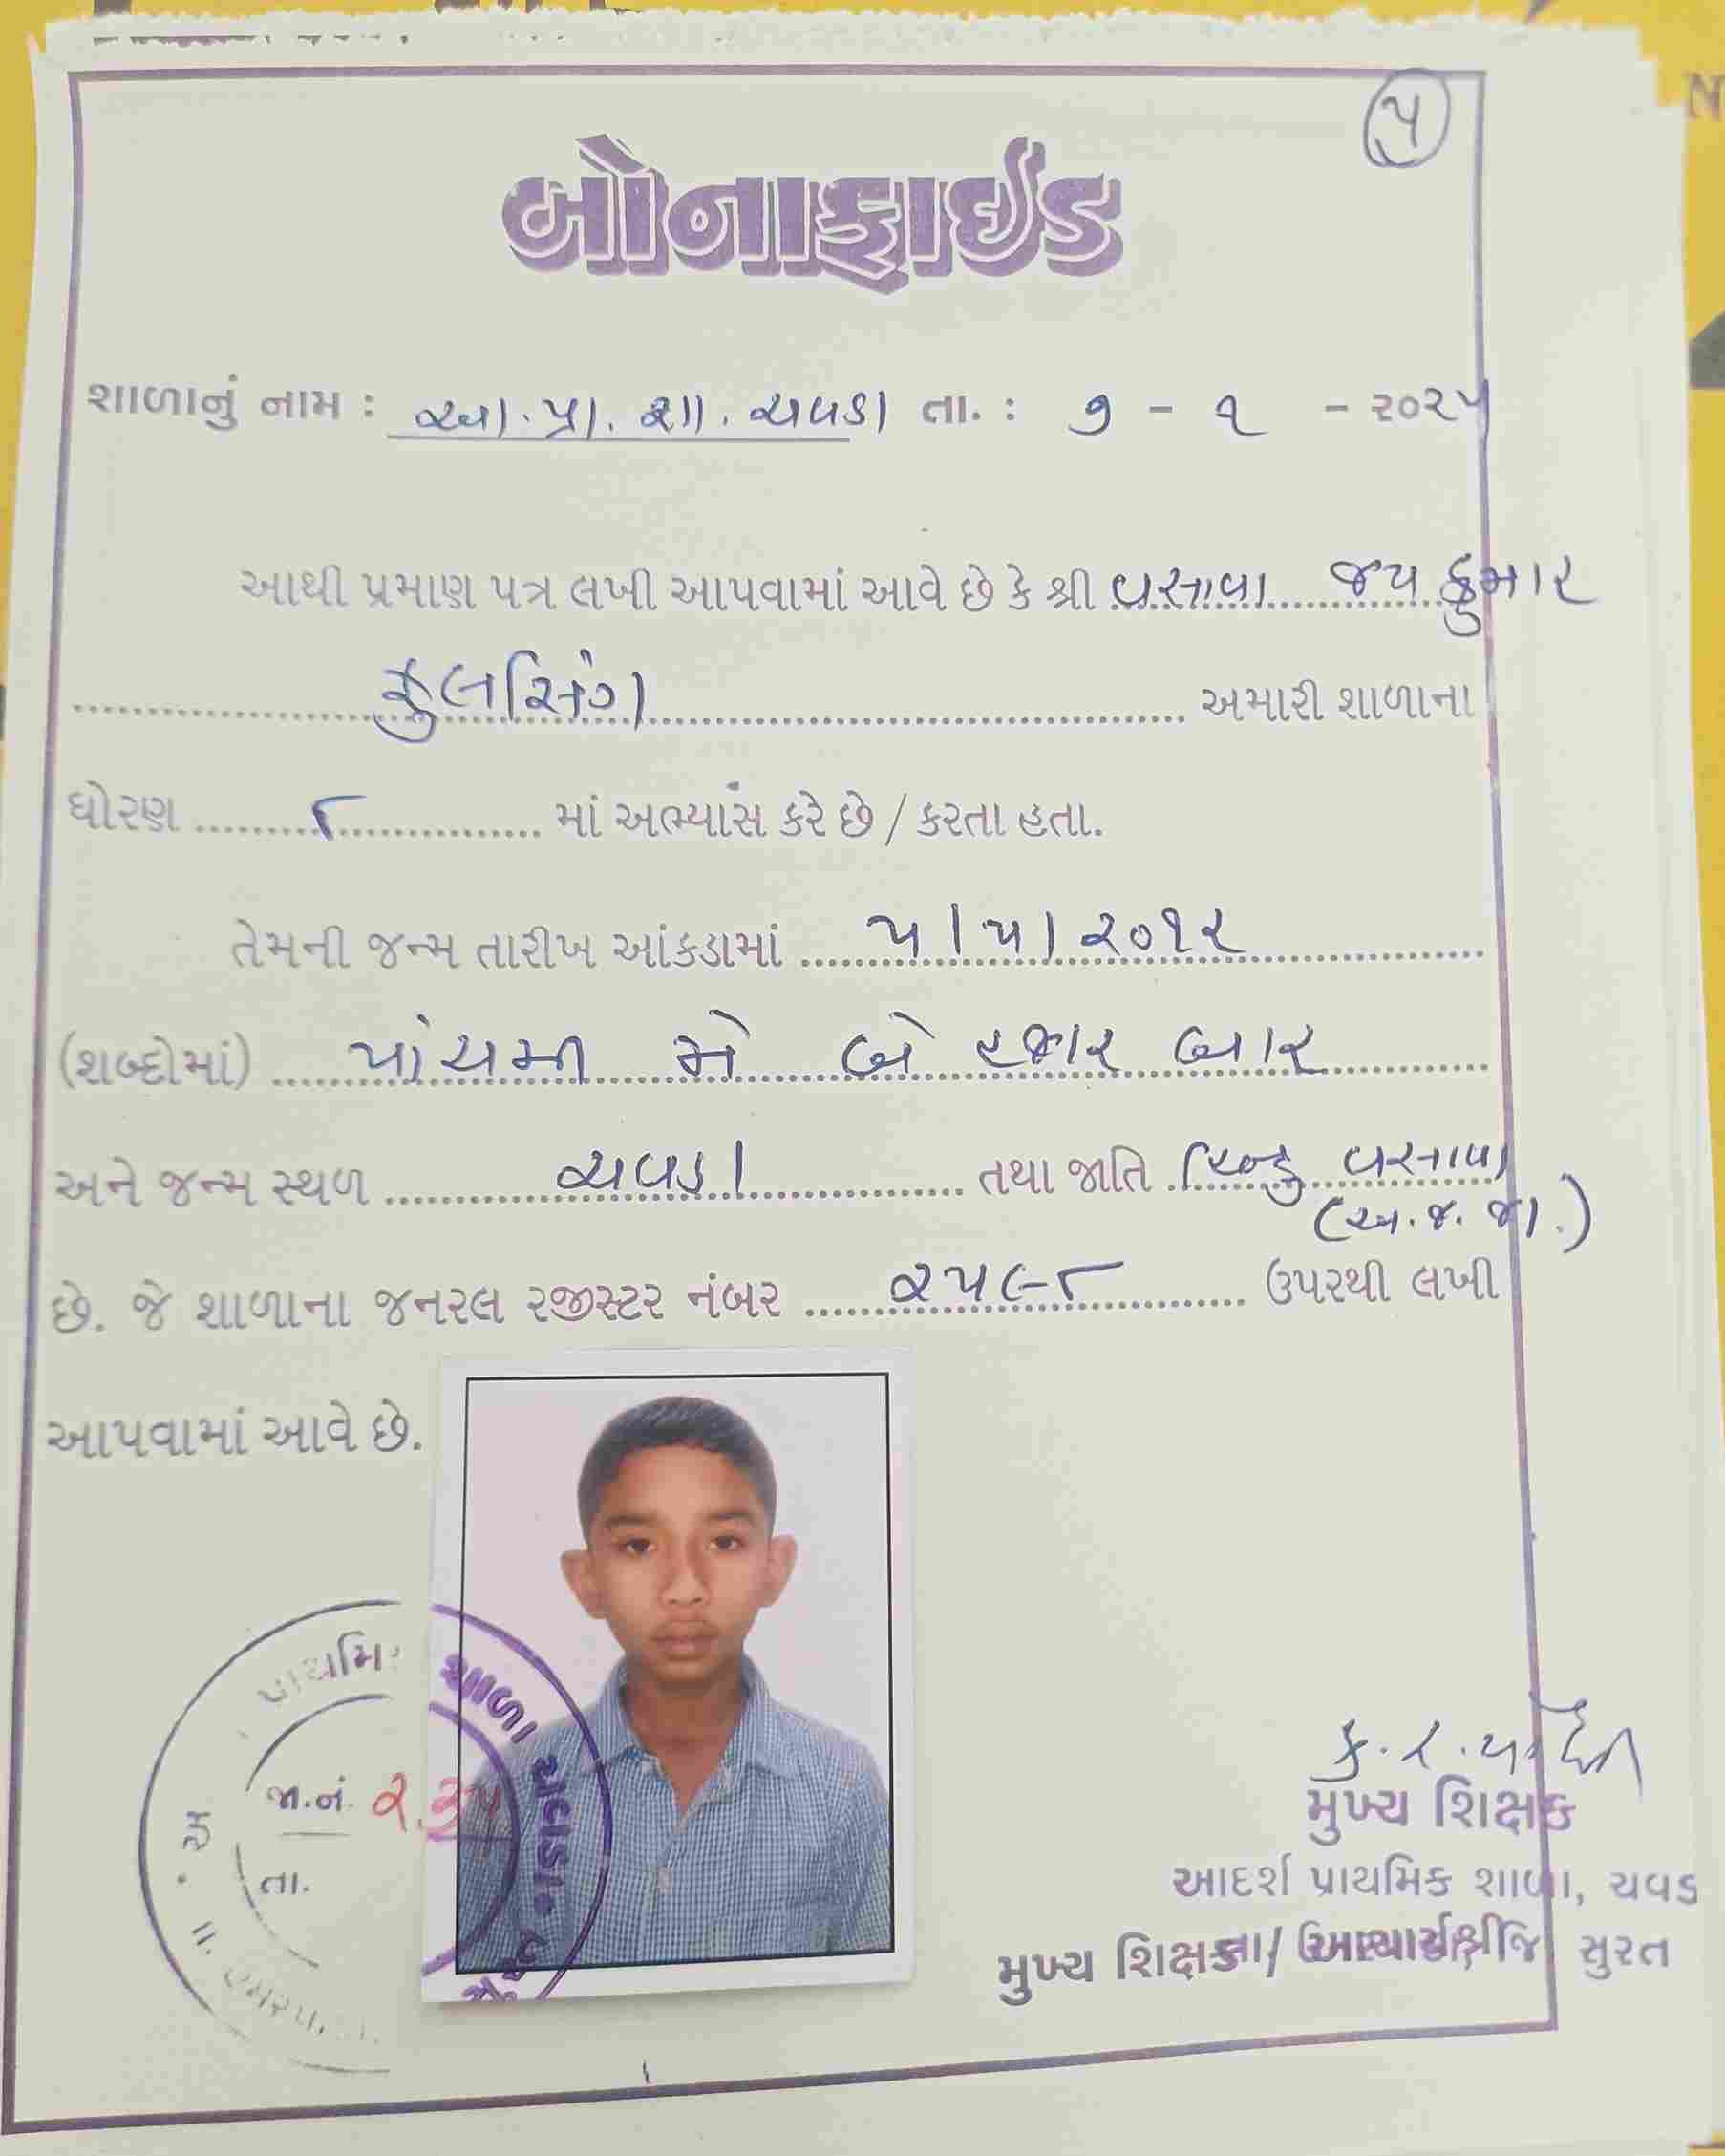 ૫
બોનાફાઈડ
શાળાનું નામ : આ. પ્રા. શા. ચવડા તા. : ૭ - ૧ - ૨૦૨૫
આથી પ્રમાણ પત્ર લખી આપવામાં આવે છે કે શ્રી વસાવા જયકુમાર
ફુલસિંગ અમારી શાળાના
ધોરણ ૮ માં અભ્યાસ કરે છે / કરતા હતા.
તેમની જન્મ તારીખ આંકડામાં ૫ / ૫ / ૨૦૧૨
(શબ્દોમાં) પાંચમી મે બે હજાર બાર
અને જન્મ સ્થળ ચવડા તથા જાતિ હિન્દુ વસાવા
(અ. જ. જા.)
છે. જે શાળાના જનરલ રજીસ્ટર નંબર ૨૫૯૮ ઉપરથી લખી
આપવામાં આવે છે.
પ્રાથમિક શાળા ચવડા
જા.નં. ૨૩૫
તા.
મુખ્ય શિક્ષક
આદર્શ પ્રાથમિક શાળા, ચવડા
મુખ્ય શિક્ષક / આચાર્યશ્રી
જિ સુરત